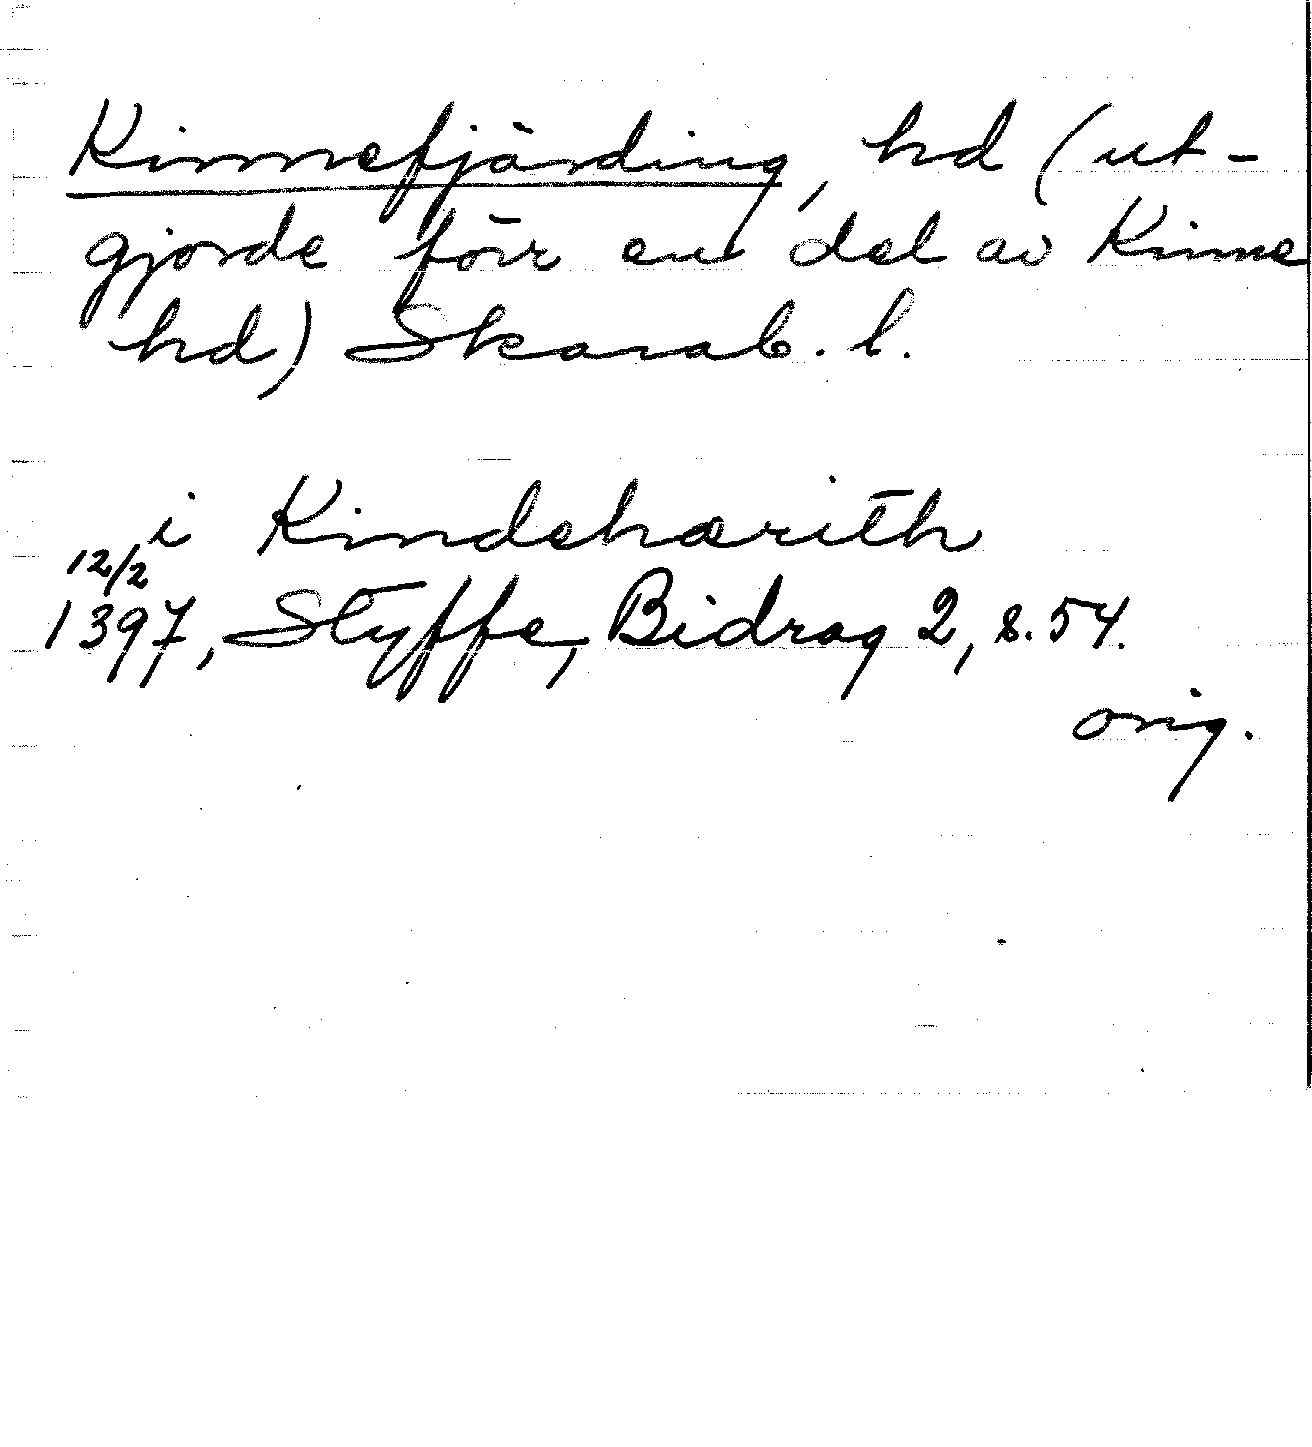 Kinnefjärding, hd (ut-
gjorde förr en del av Kinne
hd) Skarab. l.
i Kindehærith
12/2
1397, Styffe, Bidrag 2, s. 54.
orig.